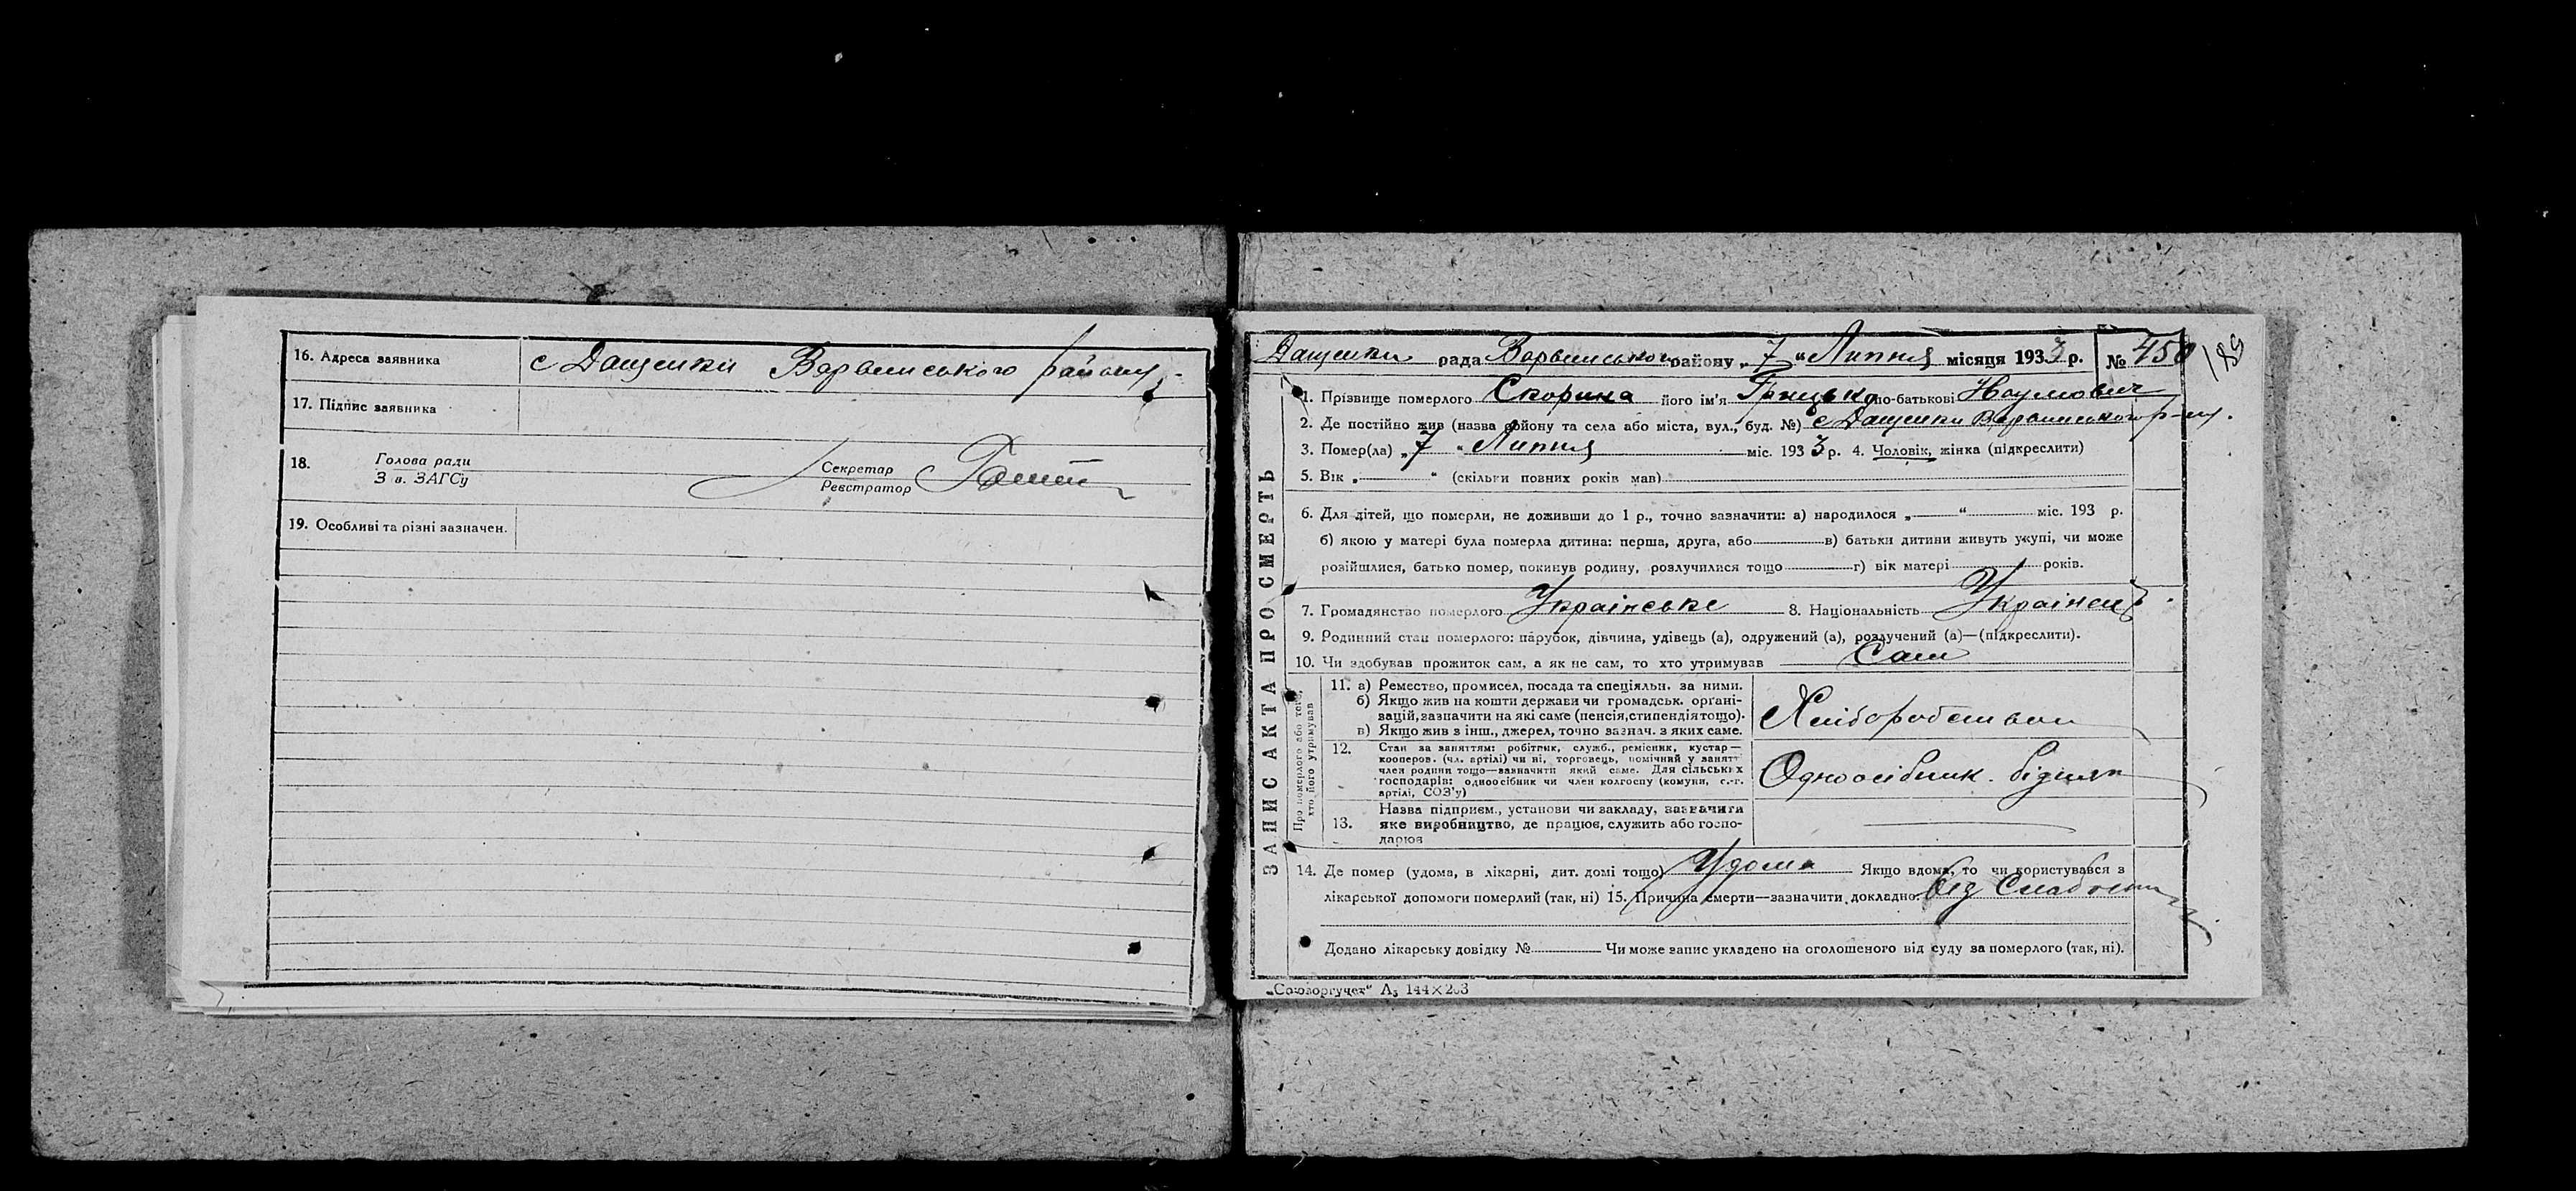 16. Адреса заявника с Дащенки Варвинського району
17. Підпис заявника
18. Голова ради Секретар
З в. ЗАГСу Реєстратор
19. Особливі та різні зазначен.
Дащенки рада Варвинського району „7“ Липня місяця 1933 р. № 450
189
ЗАПИС АКТА ПРО СМЕРТЬ
1. Прізвище померлого Скорина його ім'я Грицько по-батькові Наумович
2. Де постійно жив (назва району та села або міста, вул., буд. №) с Дащенки Варвинського р-ну.
3. Помер(ла) „7“ Липня міс. 1933 р. 4. Чоловік, жінка (підкреслити)
5. Вік „ “ (скільки повних років мав)
6. Для дітей, що померли, не доживши до 1 р., точно зазначити: а) народилося „ “ міс. 193 р.
б) якою у матері була померла дитина: перша, друга, або в) батьки дитини живуть укупі, чи може
розійшлися, батько помер, покинув родину, розлучилися тощо г) вік матері років.
7. Громадянство померлого Українське 8. Національність Українець
9. Родинний стан померлого: парубок, дівчина, удівець (а), одружений (а), розлучений (а)—(підкреслити).
10. Чи здобував прожиток сам, а як не сам, то хто утримував Сам
Про померлого або того, хто його утримував
11. а) Ремество, промисел, посада та спеціяльн. за ними.
б) Якщо жив на кошти держави чи громадськ. органі-
зацій, зазначити на які саме (пенсія, стипендія тощо).
в) Якщо жив з інш., джерел, точно зазнач. з яких саме.
Хліборобством
12. Стан за заняттям: робітник, служб., ремісник, кустар—
кооперов. (чл. артілі) чи ні, торговець, помічний у занятт
член родини тощо—зазначити який саме. Для сільських
господарів: одноосібник чи член колгоспу (комуни, с.-г.
артілі, СОЗ'у)
Одноосібник. бідняк
Назва підприєм., установи чи закладу, зазначити
13. яке виробництво, де працює, служить або госпо-
дарює
14. Де помер (удома, в лікарні, дит. домі тощо) Удома Якщо вдома, то чи користувався з
лікарської допомоги померлий (так, ні) 15. Причина смерти—зазначити докладно: від
Додано лікарську довідку № Чи може запис укладено на оголошеного від суду за померлого (так, ні).
„Союзоргучет“ А₅ 144×203